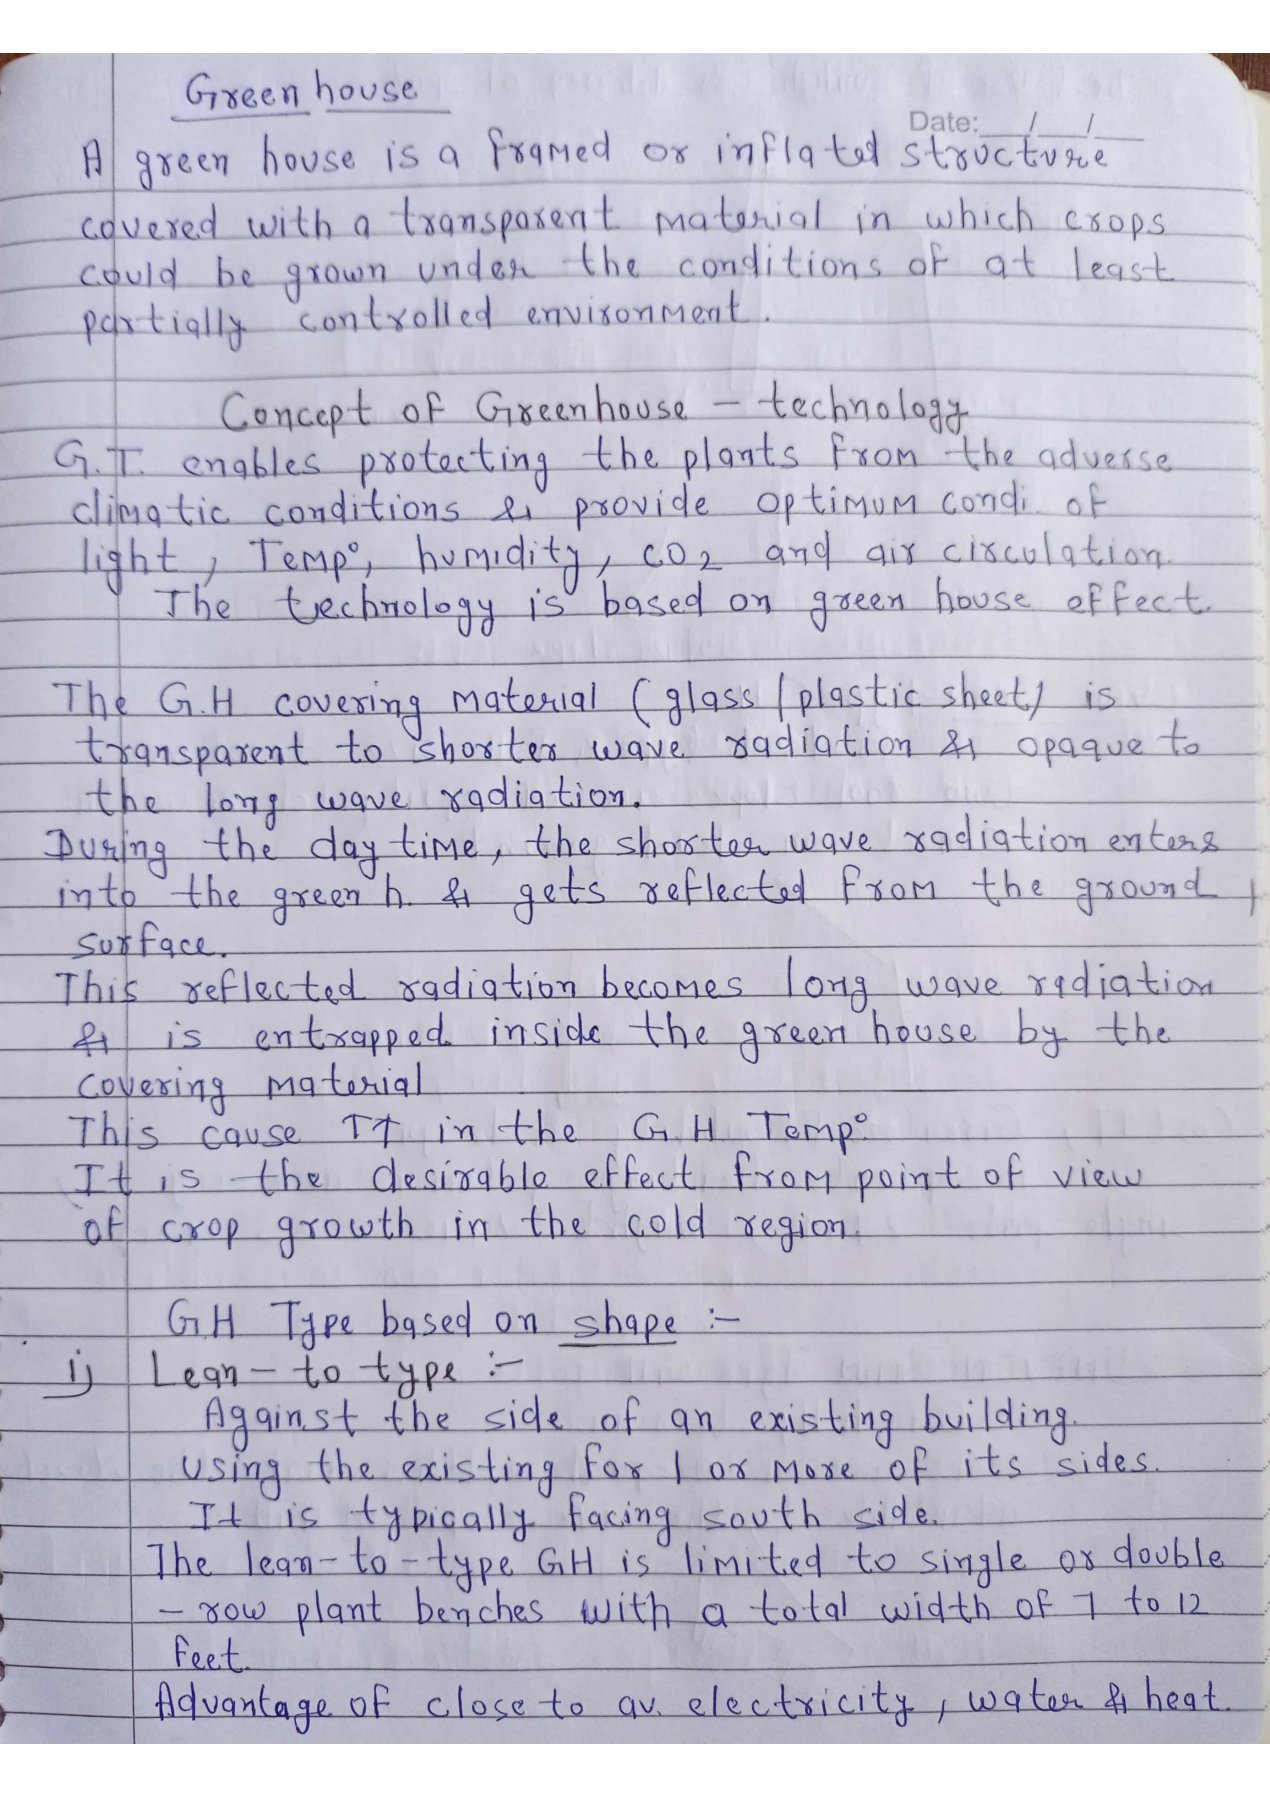 Green house
Date: __/__/__
A green house is a framed or inflated structure
covered with a transparent material in which crops
could be grown under the conditions of at least
partially controlled environment.
Concept of Greenhouse - technology
G.T. enables protecting the plants from the adverse
climatic conditions & provide optimum condi. of
light, Temp°, humidity, CO2 and air circulation.
The technology is based on green house effect.
The G.H covering material (glass / plastic sheet) is
transparent to shorter wave radiation & opaque to
the long wave radiation.
During the day time, the shorter wave radiation enters
into the green h. & gets reflected from the ground
surface.
This reflected radiation becomes long wave radiation
& is entrapped inside the green house by the
covering material
This cause ↑↑ in the G.H Temp°
It is the desirable effect from point of view
of crop growth in the cold region.
G.H Type based on shape :-
i) Lean-to type :-
Against the side of an existing building.
using the existing for 1 or more of its sides.
It is typically facing south side.
The lean-to-type GH is limited to single or double
- row plant benches with a total width of 7 to 12
feet.
Advantage of close to av. electricity, water & heat.